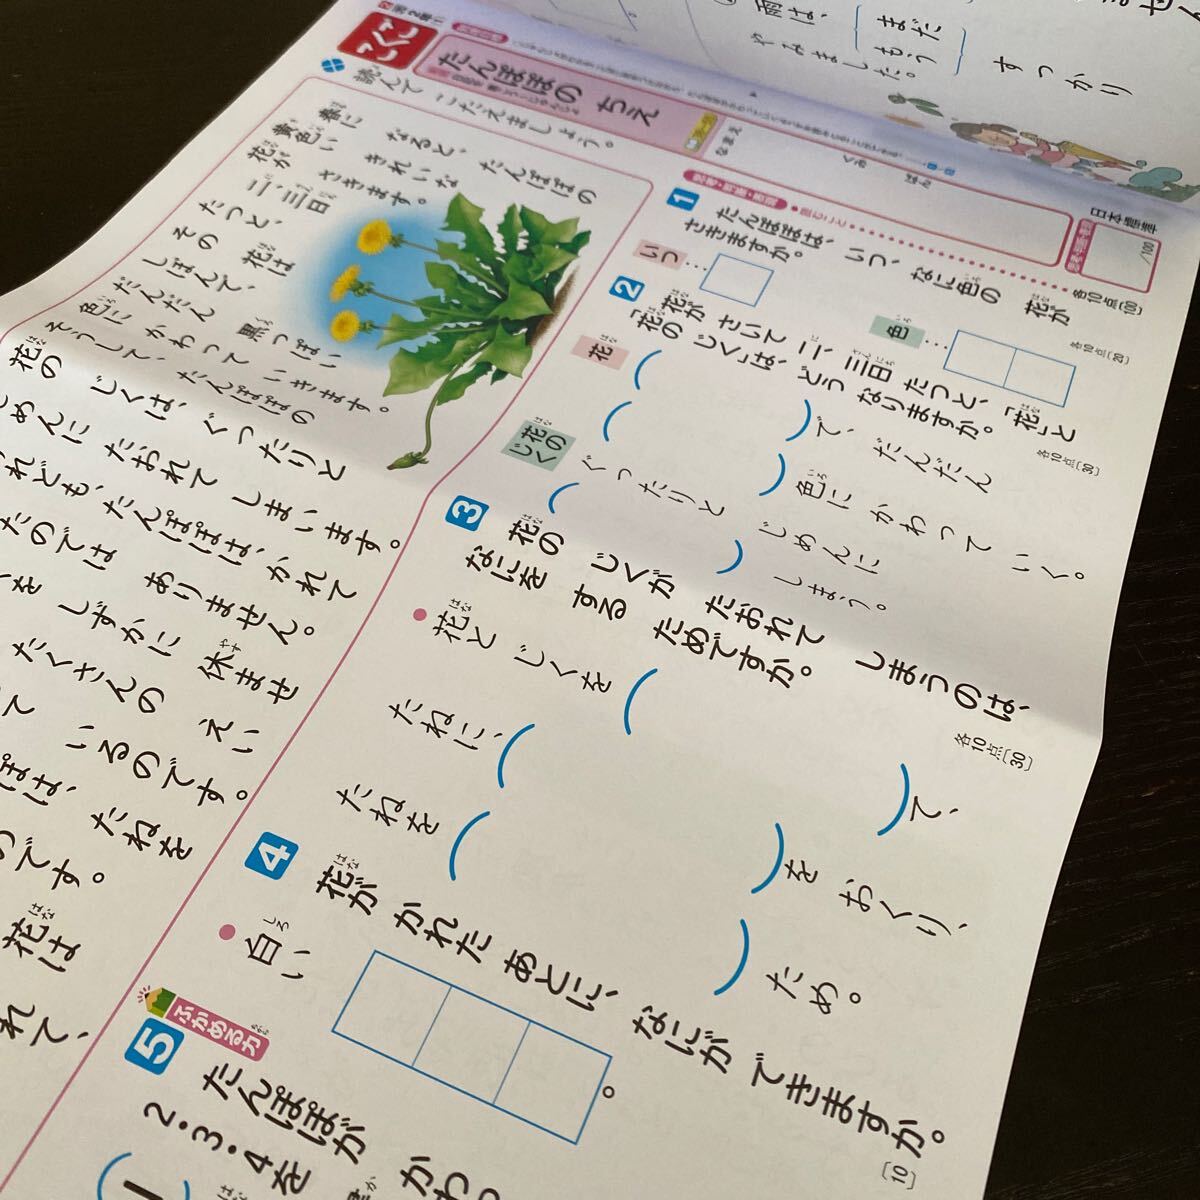 まだ
もう
すっかり
雨は、
やみました。
こくご
たんぽぽの ちえ
なまえ
くみ
ばん
日本標準
/100
読んで こたえましょう。
春に なると、たんぽぽの
黄色い きれいな
花が さきます。
二、三日
たつと、
その 花は
しぼんで、
だんだん 黒っぽい
色に かわって いきます。
そうして、たんぽぽの
花の じくは、ぐったりと
じめんに たおれて しまいます。
けれども、たんぽぽは、かれて
たのでは ありません。
を しずかに 休ませ
たくさんの えい
て いるのです。
ぽは、たねを
のです。
花は
れて、
1
たんぽぽは、いつ、なに色の 花が
さきますか。
各10点〔20〕
いつ…
色…
2
花が さいて 二、三日 たつと、「花」と
「花の じく」は、どう なりますか。
各10点〔30〕
花
( )で、だんだん
( )色に かわって いく。
花の じく
ぐったりと じめんに
( )しまう。
3
花の じくが たおれて しまうのは、
なにを する ためですか。
各10点〔30〕
●花と じくを( )て、
たねに、( )を おくり、
たねを( )ため。
4
花が かれた あとに、なにが できますか。
〔10〕
●白い
。
ふかめる力
5
たんぽぽが かわっ
2・3・4を